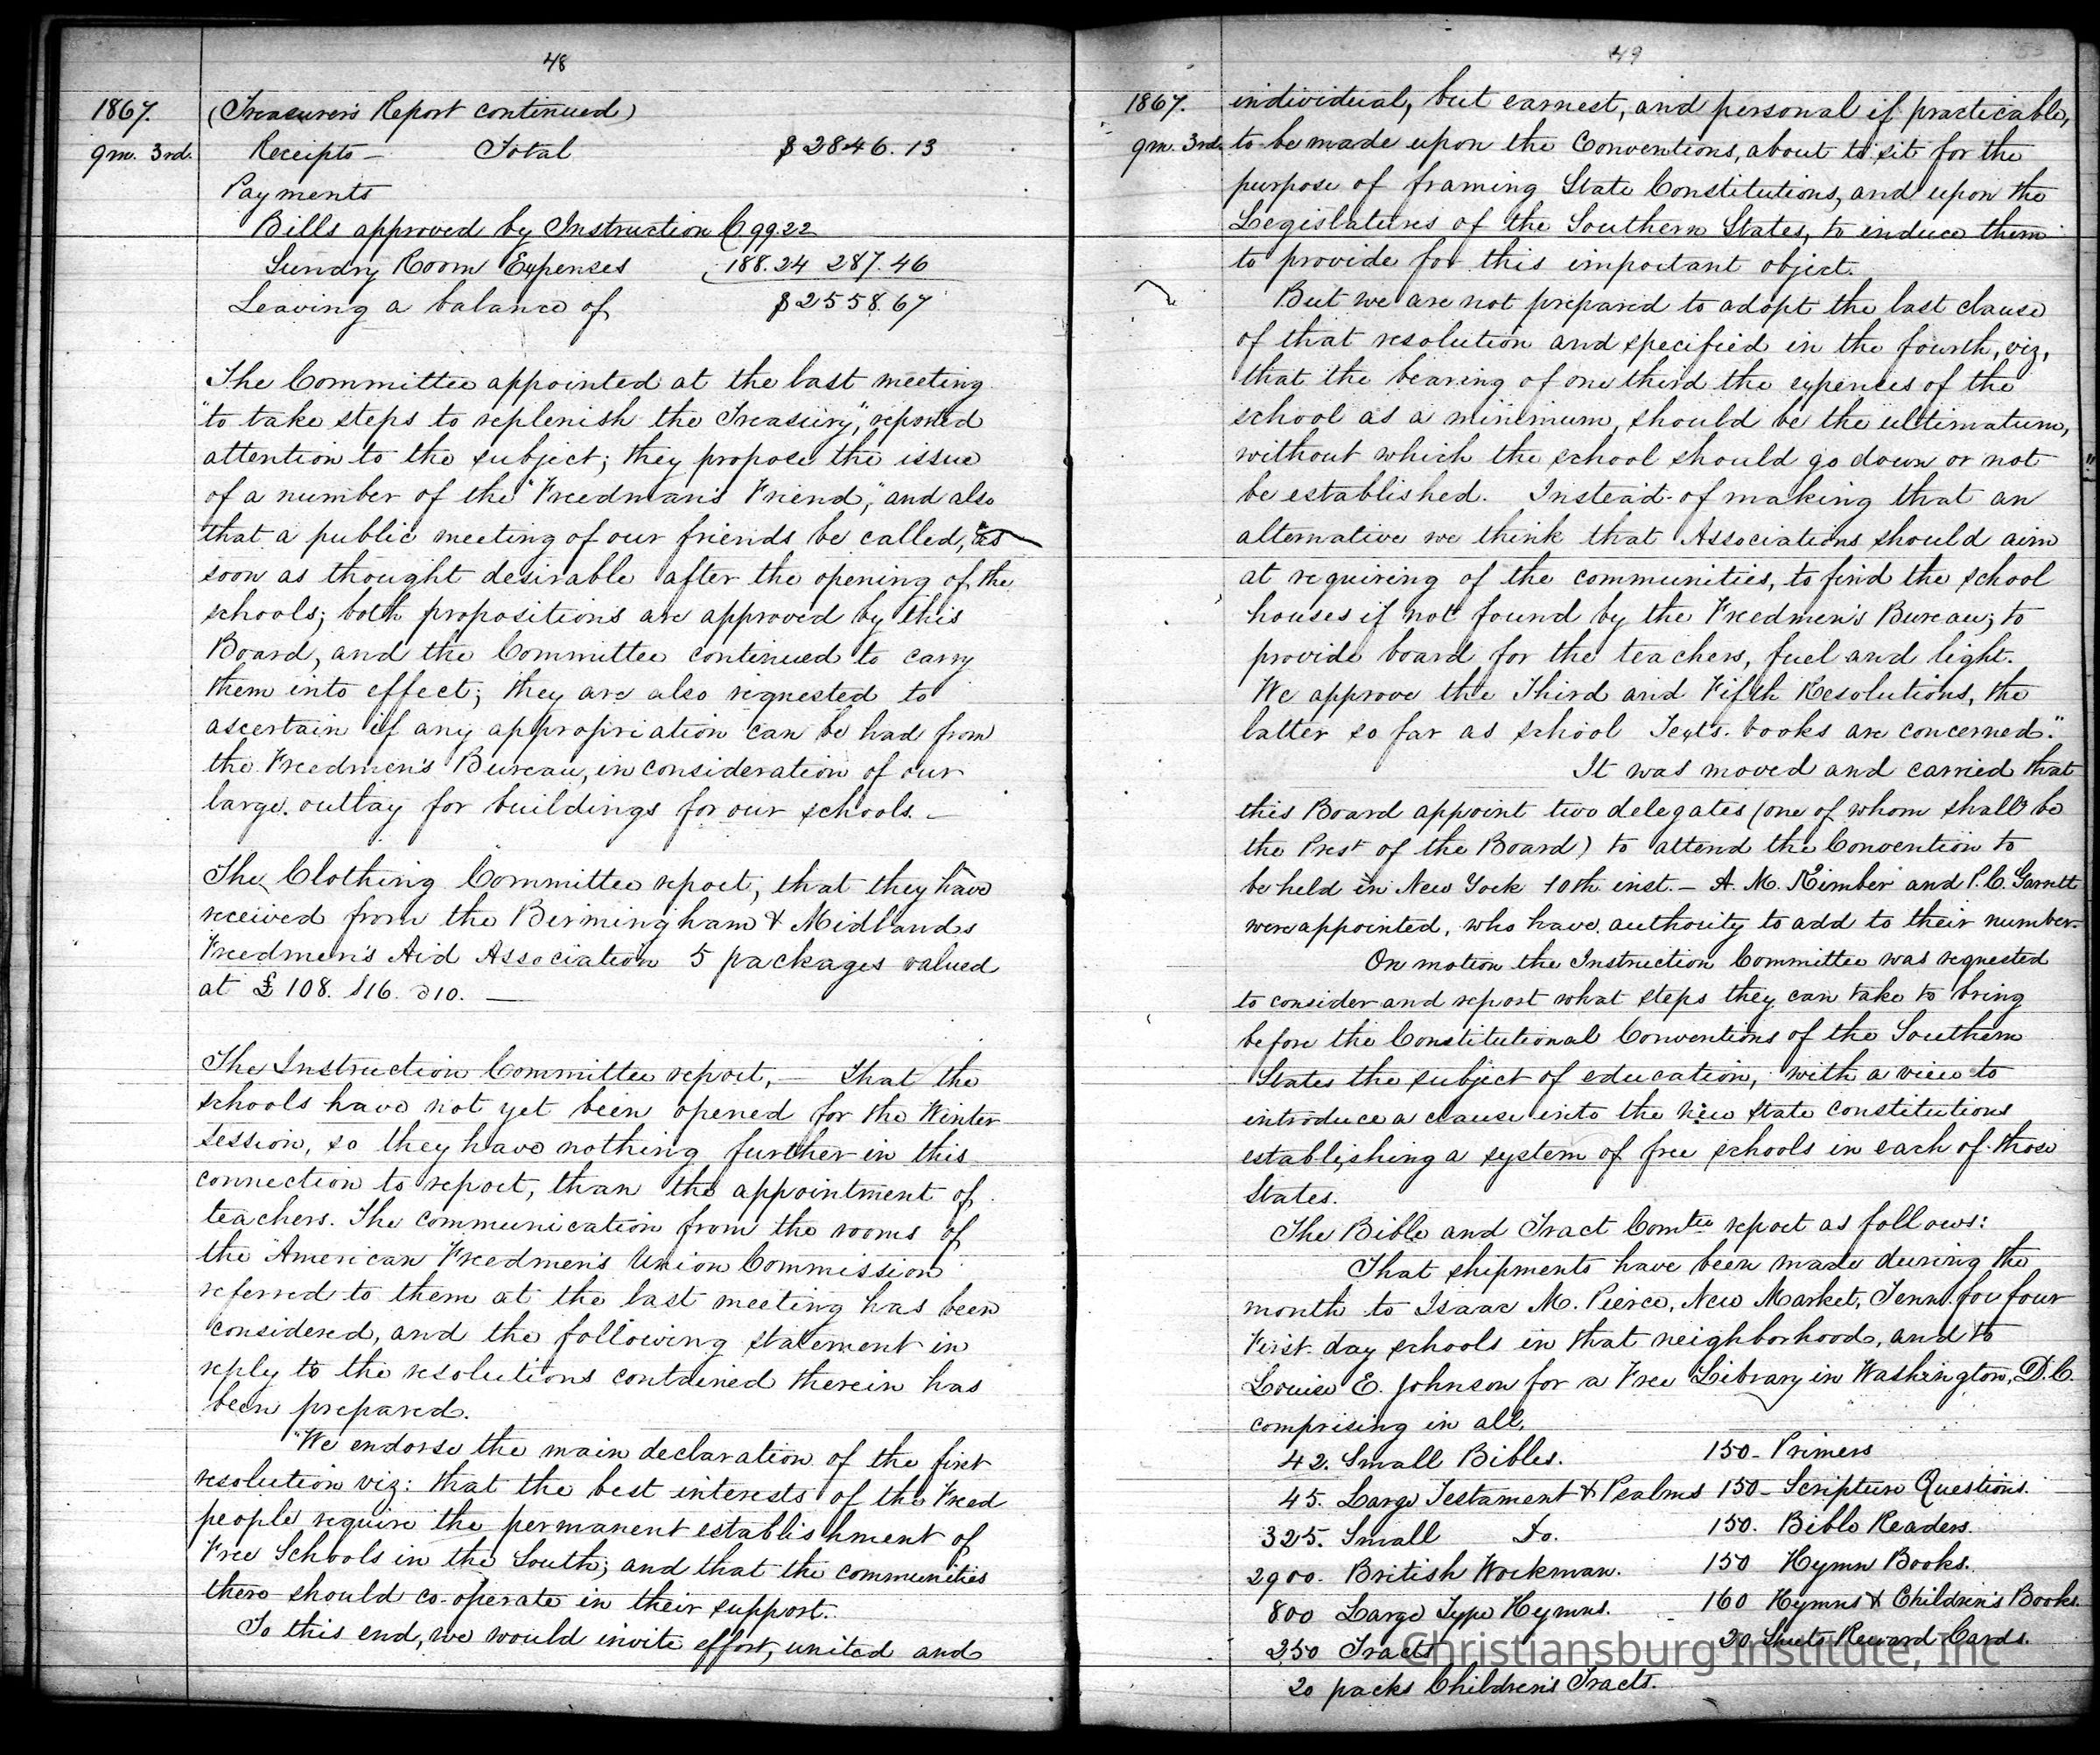 48
1867.
9m. 3rd.
(Treasurer's Report continued)
Receipts - Total $2846.13
Payments
Bills approved by Instruction C 99.22
Sundry Room Expenses 188.24 287.46
Leaving a balance of $2558.67
The Committee appointed at the last meeting
"to take steps to replenish the Treasury", reported
attention to the subject; they propose the issue
of a number of the "Freedman's Friend", and also
that a public meeting of our friends be called, as
soon as thought desirable after the opening of the
schools; both propositions are approved by this
Board, and the Committee continued to carry
them into effect; they are also requested to
ascertain if any appropriation can be had from
the Freedmen's Bureau, in consideration of our
large outlay for buildings for our schools. —
The Clothing Committee report, that they have
received from the Birmingham & Midlands
Freedmen's Aid Association 5 packages valued
at £108. s16. d10. —
The Instruction Committee report, — That the
schools have not yet been opened for the Winter
session, so they have nothing further in this
connection to report, than the appointment of
teachers. The communication from the rooms of
the American Freedmen's Union Commission
referred to them at the last meeting has been
considered, and the following statement in
reply to the resolutions contained therein has
been prepared.
"We endorse the main declaration of the first
resolution viz: that the best interests of the Freed
people require the permanent establishment of
Free Schools in the South; and that the communities
there should co-operate in their support.
To this end, we would invite effort, united and
49
1867.
9m. 3rd.
individual, but earnest, and personal if practicable,
to be made upon the Conventions, about to sit for the
purpose of framing State Constitutions, and upon the
Legislatures of the Southern States, to induce them
to provide for this important object.
But we are not prepared to adopt the last clause
of that resolution and specified in the fourth, viz,
that the bearing of one third the expences of the
school as a minimum, should be the ultimatum,
without which the school should go down or not
be established. Instead of making that an
alternative we think that Associations should aim
at requiring of the communities, to find the school
houses if not found by the Freedmen's Bureau; to
provide board for the teachers, fuel and light.
We approve the Third and Fifth Resolutions, the
latter so far as school Text-books are concerned."
It was moved and carried that
this Board appoint two delegates (one of whom shall be
the Prest of the Board) to attend the Convention to
be held in New York 10th inst. — A. M. Kimber and P. C. Garrett
were appointed, who have authority to add to their number.
On motion the Instruction Committee was requested
to consider and report what steps they can take to bring
before the Constitutional Conventions of the Southern
States the subject of education, with a view to
introduce a clause into the new state constitutions
establishing a system of free schools in each of those
States.
The Bible and Tract Comtee report as follows:
That shipments have been made during the
month to Isaac M. Pierce, New Market, Tenn. for four
First-day schools in that neighborhood, and to
Louise E. Johnson for a Free Library in Washington, D.C.
comprising in all,
42. Small Bibles. 150 - Primers
45. Large Testament & Psalms 150 - Scripture Questions.
325. Small Do. 150. Bible Readers.
2900. British Workman. 150 Hymn Books.
800 Large Type Hymns. 160 Hymns & Children's Books.
250 Tracts 20 Sheets Reward Cards.
20 packs Children's Tracts.
Christiansburg Institute, Inc